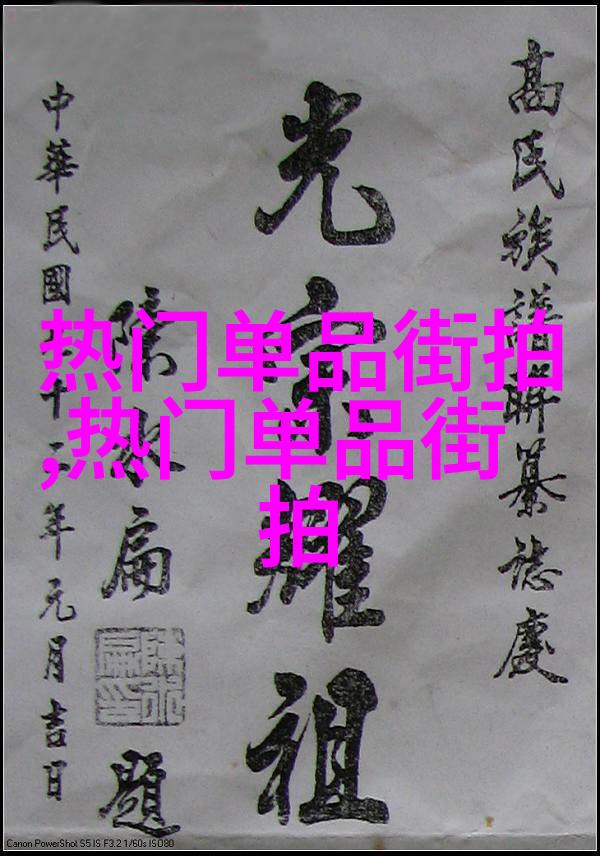 高氏族譜聯纂誌慶
光宗耀祖
陳水扁
題
中華民國十二年元月吉日
热门单品街拍
,热门单品街
拍
Canon PowerShot S5 IS F3.2 1/60s ISO80